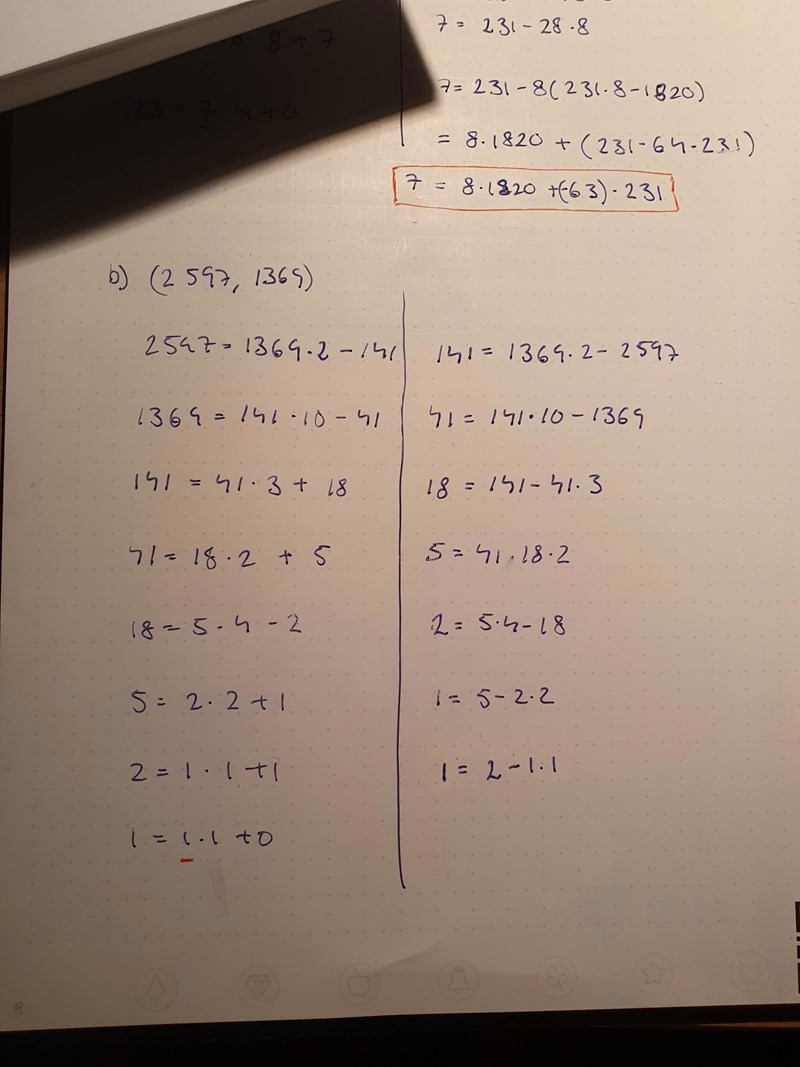 8 + 7
28 = 7 · 4 + 0
7 = 231 - 28 · 8
7 = 231 - 8(231 · 8 - 1820)
= 8 · 1820 + (231 - 64 · 231)
7 = 8 · 1820 + (-63) · 231
b) (2597, 1369)
2597 = 1369 · 2 - 141
1369 = 141 · 10 - 41
141 = 41 · 3 + 18
41 = 18 · 2 + 5
18 = 5 · 4 - 2
5 = 2 · 2 + 1
2 = 1 · 1 + 1
1 = 1 · 1 + 0
141 = 1369 · 2 - 2597
41 = 141 · 10 - 1369
18 = 141 - 41 · 3
5 = 41 · 18 · 2
2 = 5 · 4 - 18
1 = 5 - 2 · 2
1 = 2 - 1 · 1
8